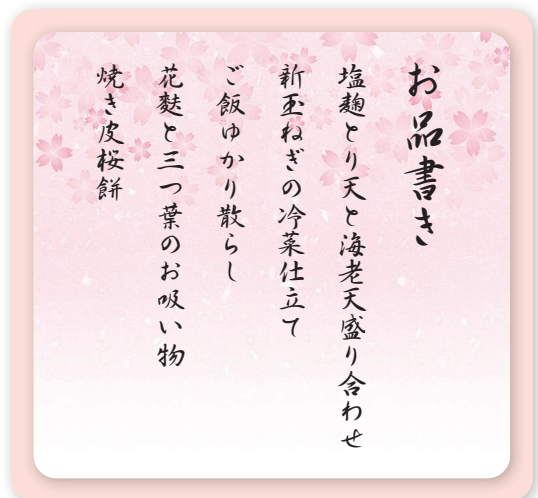 お品書き
塩麹とり天と海老天盛り合わせ
新玉ねぎの冷菜仕立て
ご飯ゆかり散らし
花麩と三つ葉のお吸い物
焼き皮桜餅